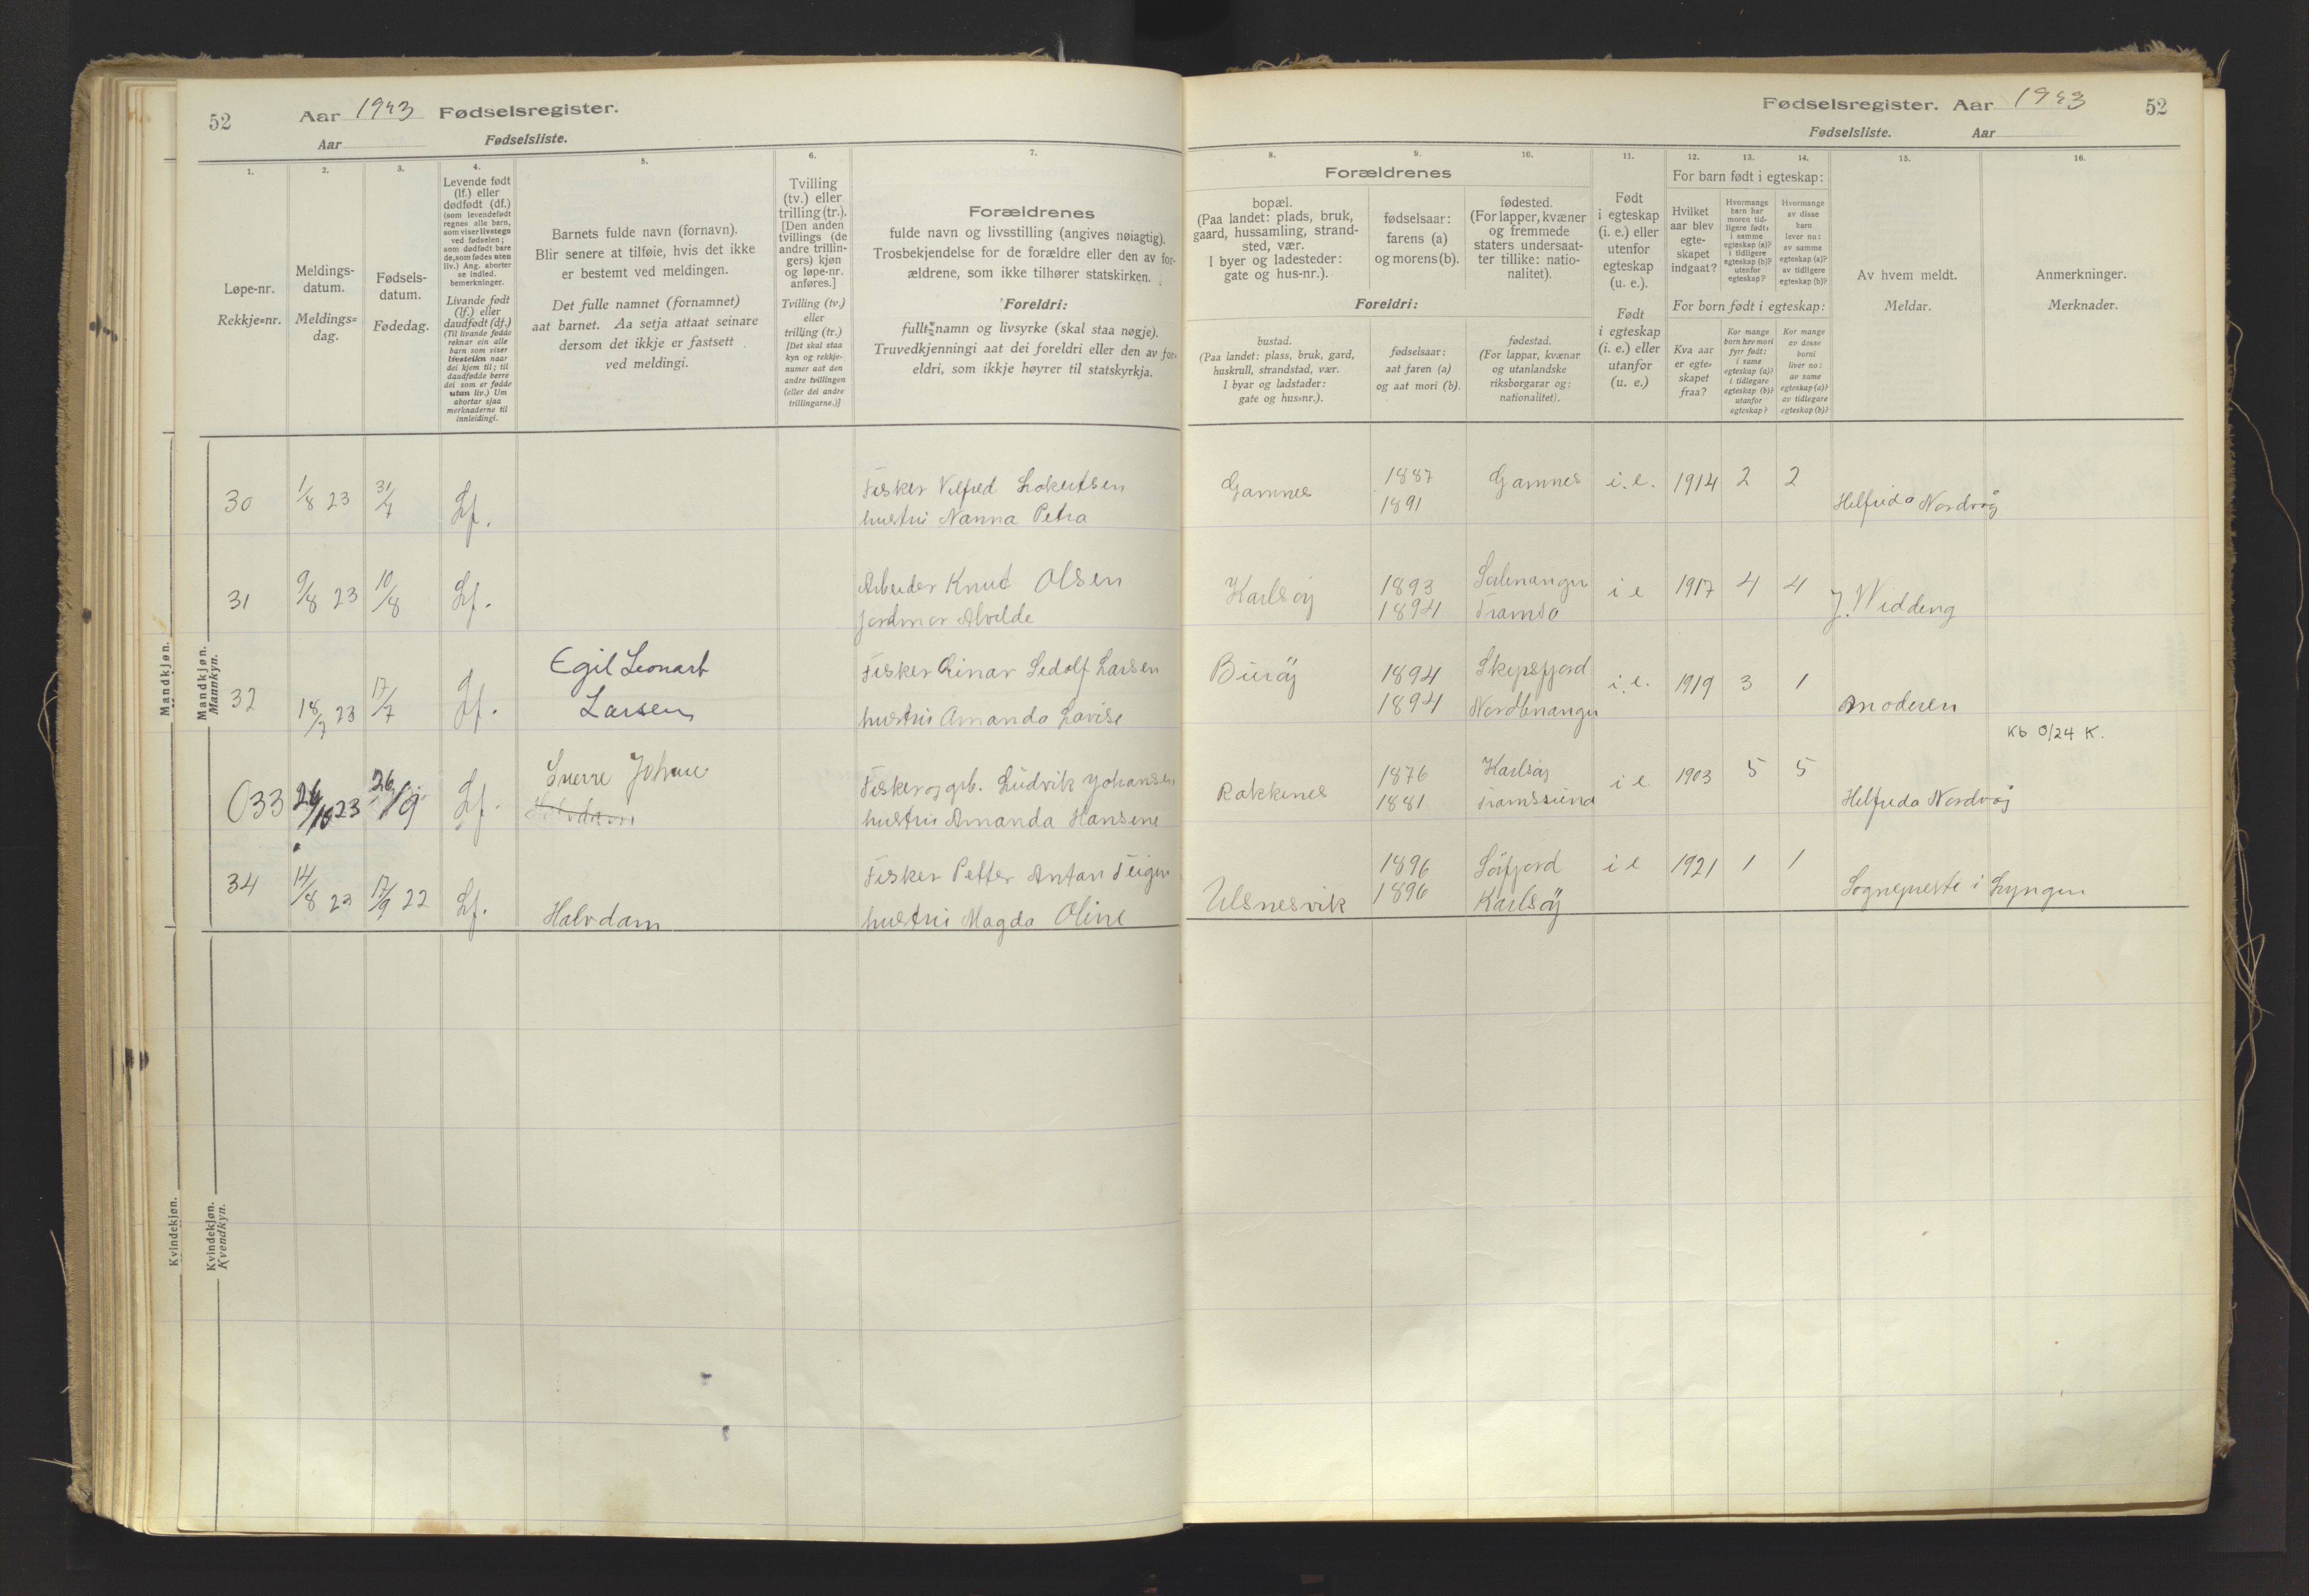 52 Aar 1923 Fødselsregister.
Aar Fødselsliste.
1.
Løpe-nr.
Rekkje=nr.
2.
Meldings-
datum.
Meldings=
dag.
3.
Fødsels-
datum.
Fødedag.
4.
Levende født
(lf.) eller
dødfødt (df.)
(som levendefødt
regnes alle barn,
som viser livstegn
ved fødselen;
som dødfødt bare
de, som fødes uten
liv.) Ang. aborter
se indled.
bemerkninger.
Livande født
(lf.) eller
daudfødt (df.)
(Til livande fødde
reknar ein alle
barn som viser
livsteikn naar
dei kjem til; til
daudfødde berre
dei som er fødde
utan liv.) Um
abortar sjaa
merknaderne til
innleidingi.
5.
Barnets fulde navn (fornavn).
Blir senere at tilføie, hvis det ikke
er bestemt ved meldingen.
Det fulle namnet (fornamnet)
aat barnet. Aa setja attaat seinare
dersom det ikkje er fastsett
ved meldingi.
6.
Tvilling
(tv.) eller
trilling (tr.).
[Den anden
tvillings (de
andre trillin-
gers) kjøn
og løpe-nr.
anføres.]
Tvilling (tv.)
eller
trilling (tr.)
[Det skal staa
kyn og rekkje-
numer aat den
andre tvillingen
(eller dei andre
trillingarne.)]
7.
Forældrenes
fulde navn og livsstilling (angives nøiagtig).
Trosbekjendelse for de forældre eller den av for-
ældrene, som ikke tilhører statskirken.
Foreldri:
fullt namn og livsyrke (skal staa nøgje).
Truvedkjenningi aat dei foreldri eller den av for=
eldri, som ikkje høyrer til statskyrkja.
Mandkjøn.
Mandkjøn.
Mannkyn.
30 1/8 23 31/7 Lf.
Fisker Vilfred
hustru Nanna Petra
31 9/8 23 10/8 Lf.
Arbeider Knut Olsen
Jordmor Alvilde
32 18/7 23 17/7 Lf.
Egil Leonart
Larsen
Fisker Einar Sedolf Larsen
hustru Amanda Lovise
33 26/10 23 26/9 Lf.
Sverre Johan
Fisker og grb. Ludvik Johansen
hustru Amanda Hansine
34 14/8 23 17/9 22 Lf.
Halvdam
Fisker Petter Antan Teigen
hustru Magda Oline
Kvindekjøn.
Kvindekjøn.
Kvendkyn.
Fødselsregister. Aar 1923 52
Fødselsliste. Aar
Forældrenes
8.
bopæl.
(Paa landet: plads, bruk,
gaard, hussamling, strand-
sted, vær.
I byer og ladesteder:
gate og hus-nr.).
9.
fødselsaar:
farens (a)
og morens (b).
10.
fødested.
(For lapper, kvæner
og fremmede
staters undersaat-
ter tillike: natio-
nalitet).
Foreldri:
bustad.
(Paa landet: plass, bruk, gard,
huskrull, strandstad, vær.
I byar og ladstader:
gate og hus=nr.).
fødselsaar:
aat faren (a)
og aat mori (b).
fødestad.
(For lappar, kvænar
og utanlandske
riksborgarar og:
nationalitet).
11.
Født
i egteskap
(i. e.) eller
utenfor
egteskap
(u. e.).
Født
i egteskap
(i. e.) eller
utanfor
(u. e.)
For barn født i egteskap:
12.
Hvilket
aar blev
egte-
skapet
indgaat?
13.
Hvormange
barn har
moren tid-
ligere født:
i samme
egteskap (a)?
i tidligere
egteskap (b)?
utenfor
egteskap?
14.
Hvormange
av disse
barn
lever nu:
av samme
egteskap (a)?
av tidligere
egteskap (b)?
For born født i egteskap:
Kva aar
er egte=
skapet
fraa?
Kor mange
born hev mori
fyrr født:
i same
egteskap (a)?
i tidlegare
egteskap (b)?
utanfor
egteskap?
Kor mange
av desse
borni
liver no:
av same
egteskap (a)?
av tidlegare
egteskap (b)?
15.
Av hvem meldt.
Meldar.
16.
Anmerkninger.
Merknader.
Gamnes 1887 Gamnes i.e. 1914 2 2
1891
Helfrida Nordvåg
Karlsøy 1893 i e 1917 4 4 J. Widding
1894 Tromsø
Burøy 1894 Skipsfjord i.e. 1919 3 1
1894 moderen
Kb 0/24 K.
Rakkenes 1876 Karlsøy i e 1903 5 5
1881 Tromssund
Helfrida Nordvåg
1896 Sørfjord i e 1921 1 1
Ulsnesvik 1896 Karlsøy
Sogneprest i Lyngen